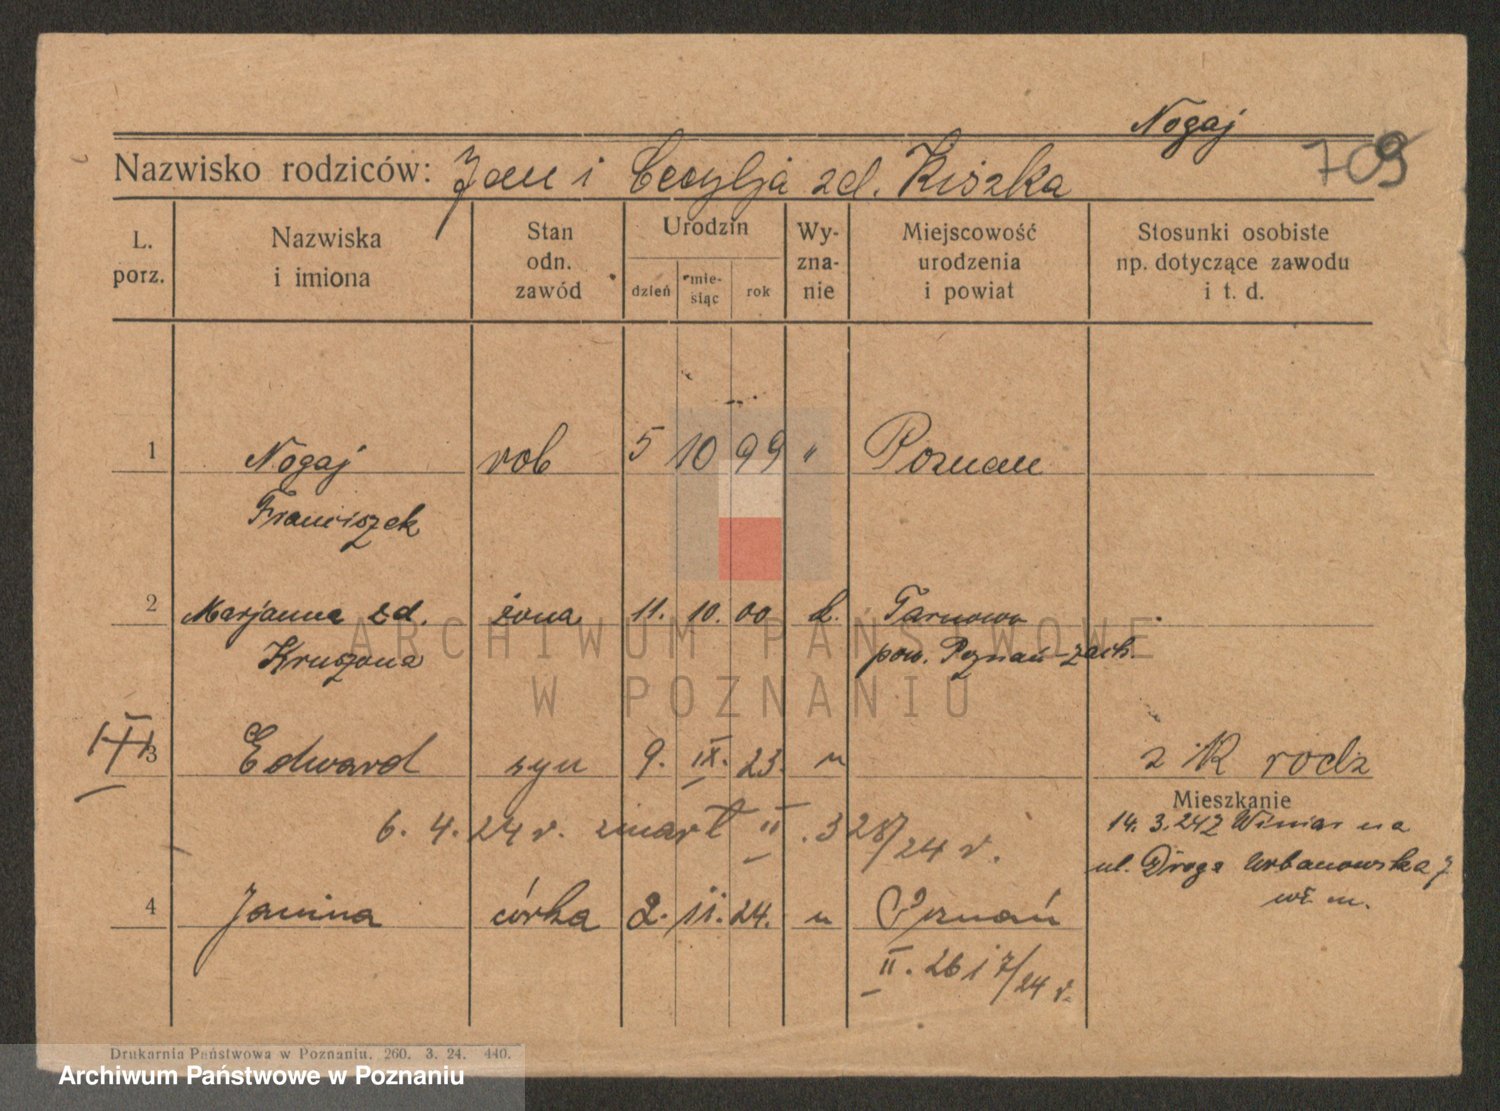 Nogaj
Nazwisko rodziców: Jan i Cecylja zd. Kiszka 709
L. porz.
Nazwiska i imiona
Stan odn. zawód
Urodzin
dzień
mie-siąc
rok
Wy-zna-nie
Miejscowość urodzenia i powiat
Stosunki osobiste np. dotyczące zawodu i t. d.
1 Nogaj rob 5 10 99 " Poznań
Franciszek
2 Marjanna zd. żona 11. 10. 00 k. Tarnowo
Kruszona pow. Poznań-zach.
3 Edward syn 9. IX. 23. " z K rodz
Mieszkanie
6. 4. 24 r. zmarł II. 328/24 r.
14. 3. 24 Winiar na
ul. Droga Urbanowska 7
wł. m.
4 Janina córka 2. 11. 24. " Poznań
II. 2617/24 r.
Drukarnia Państwowa w Poznaniu. 260. 3. 24. 440.
ARCHIWUM PAŃSTWOWE
W POZNANIU
Archiwum Państwowe w Poznaniu